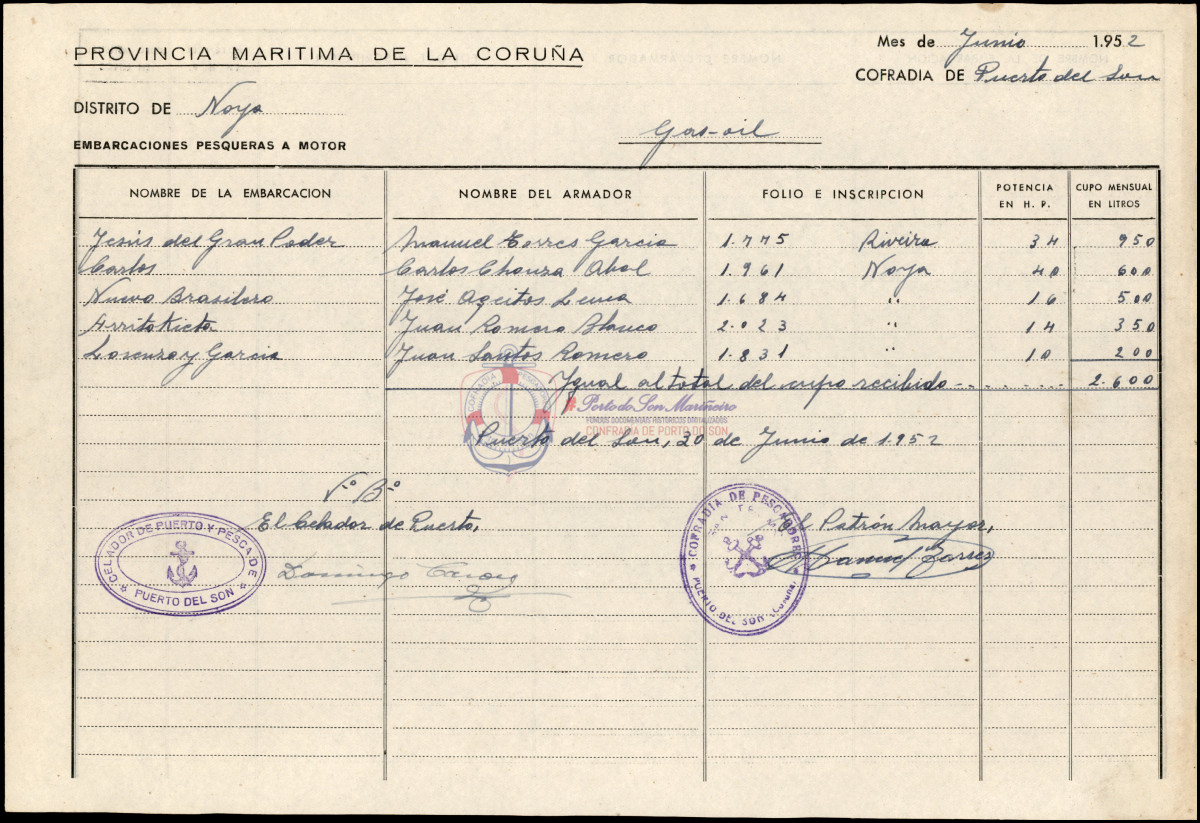 PROVINCIA MARITIMA DE LA CORUÑA
Mes de Junio 1.952
COFRADIA DE Puerto del Son
DISTRITO DE Noya
Gas-oil
EMBARCACIONES PESQUERAS A MOTOR
NOMBRE DE LA EMBARCACION NOMBRE DEL ARMADOR FOLIO E INSCRIPCION POTENCIA EN H. P. CUPO MENSUAL EN LITROS
Jesús del Gran Poder Manuel Torres Garcia 1.775 Riveira 34 950
Carlos Carlos Chouza Abal 1.961 Noya 40 600
Nuevo Brasilero José Ageitos Lema 1.684 " 16 500
Juan Romero Blanco 2.023 " 14 350
Lorenzo y Garcia Juan Santos Romero 1.831 " 10 200
Igual al total del cupo recibido 2.600
COFRADIA PESCADORES
Porto do Son Mariñeiro
FONDOS DOCUMENTAIS HISTÓRICOS DIGITALIZADOS
CONFRARÍA DE PORTO DO SON
Puerto del Son, 30 de Junio de 1.952
Vº Bº
El Celador de Puerto,
El Patrón Mayor,
CELADOR DE PUERTO Y PESCA DE
PUERTO DEL SON
Domingo
COFRADIA DE PESCADORES
PUERTO DEL SON (Coruña)
Manuel Torres